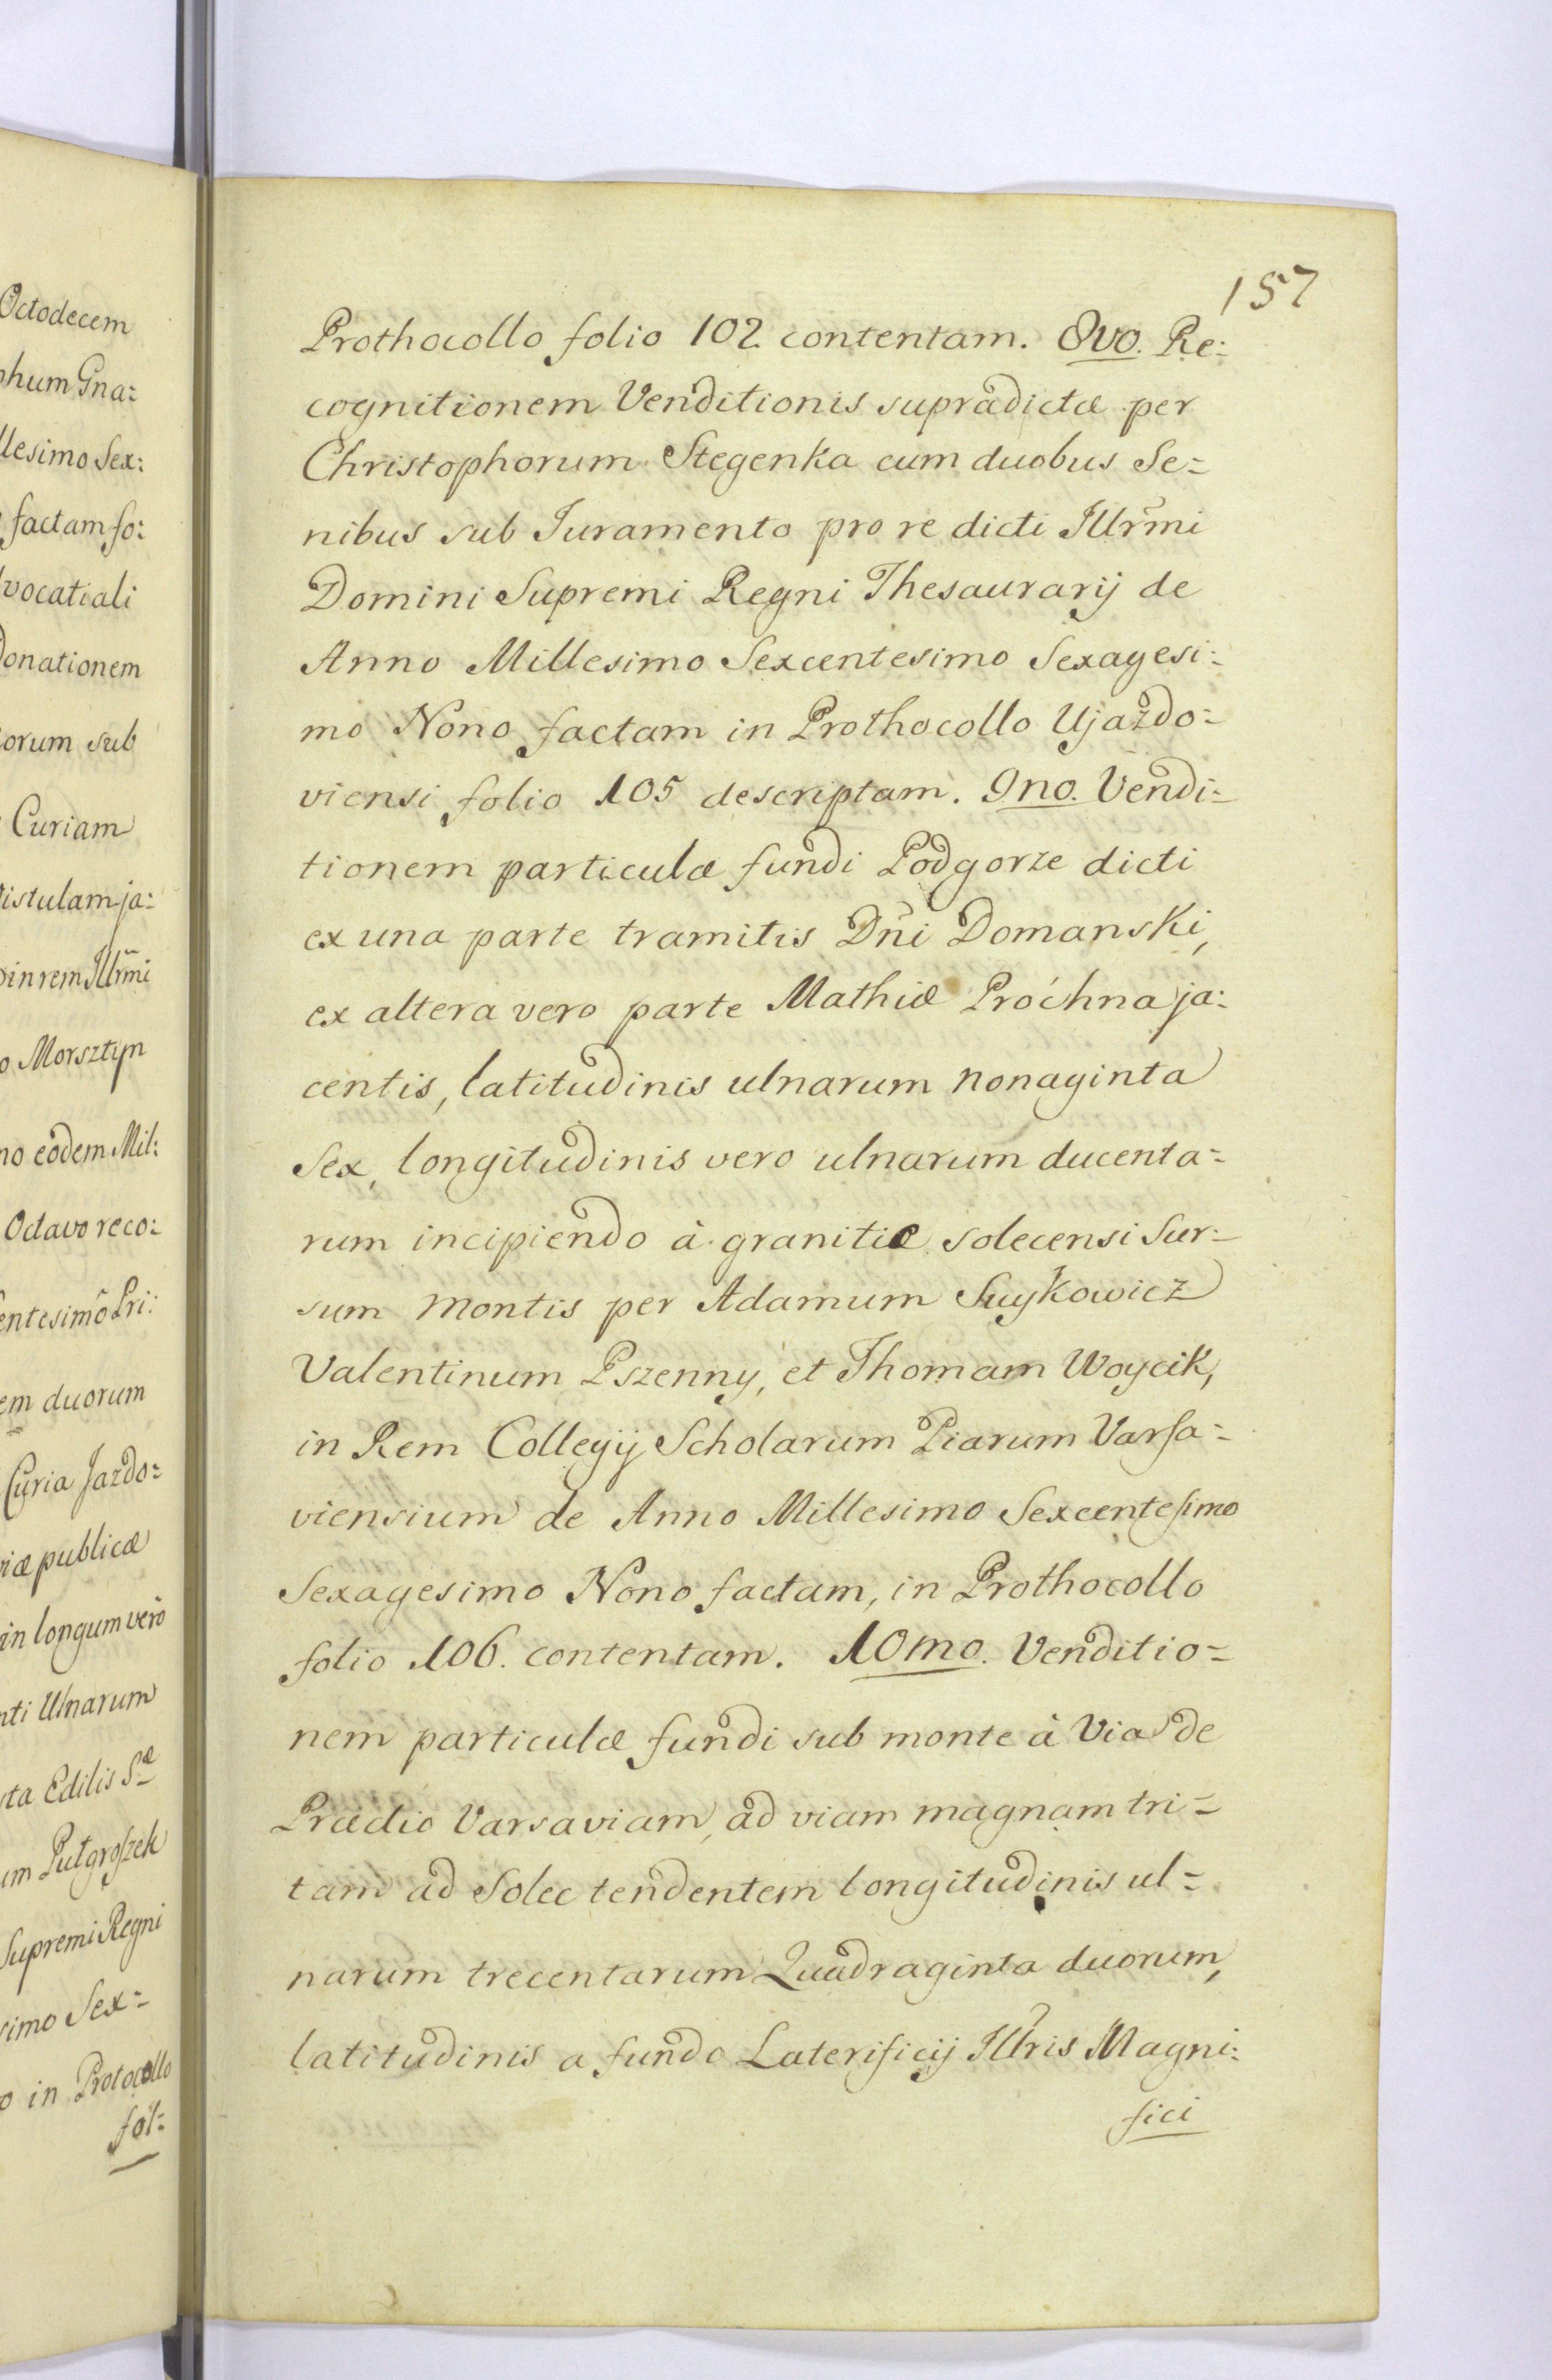 Octodecem
phum Gna:
llesimo Sex:
factam fo:
vocatiali
Donationem
orum sub
Curiam
istulam ja:
in rem Illr̃mi
o Morsztyn
no eodem Mil:
Octavo reco:
entesimo Pri:
em duorum
Curia Jazdo:
viæ publicæ
in longum verò
nti Ulnarum
ta Edilis Sæ
um Pułgroszek
Supremi Regni
simo Sex=
o in Protocollo
fol:
157
Prothocollo folio 102 contentam. 8vo. Re:
cognitionem Venditionis supradictæ per
Christophorum Stegenka cum duobus Se=
nibus sub Juramento pro re dicti Illr̃mi
Domini Supremi Regni Thesaurarij de
Anno Millesimo Sexcentesimo Sexagesi:
mo Nono factam in Prothocollo Ujazdo=
viensi folio 105 descriptam. 9no. Vendi=
tionem particulæ fundi Podgorze dicti
ex una parte tramitis Dñi Domanski,
ex altera vero parte Mathiæ Próchna ja:
centis, latitudinis ulnarum nonaginta
Sex, longitudinis vero ulnarum ducenta=
rum incipiendo à granitiæ solecensi Sur=
sum Montis per Adamum Suykowicz
Valentinum Pszenny, et Thomam Woycik,
in Rem Collegij Scholarum Piarum Varsa=
viensium de Anno Millesimo Sexcentesimo
Sexagesimo Nono factam, in Prothocollo
folio 106. contentam. 10mo. Venditio=
nem particulæ fundi sub monte à Via de
Prædio Varsaviam, ad viam magnam tri=
tam ad Solec tendentem longitudinis ul=
narum trecentarum Quadraginta duorum,
latitudinis a fundo Laterificij Illr̃is Magni:
fici